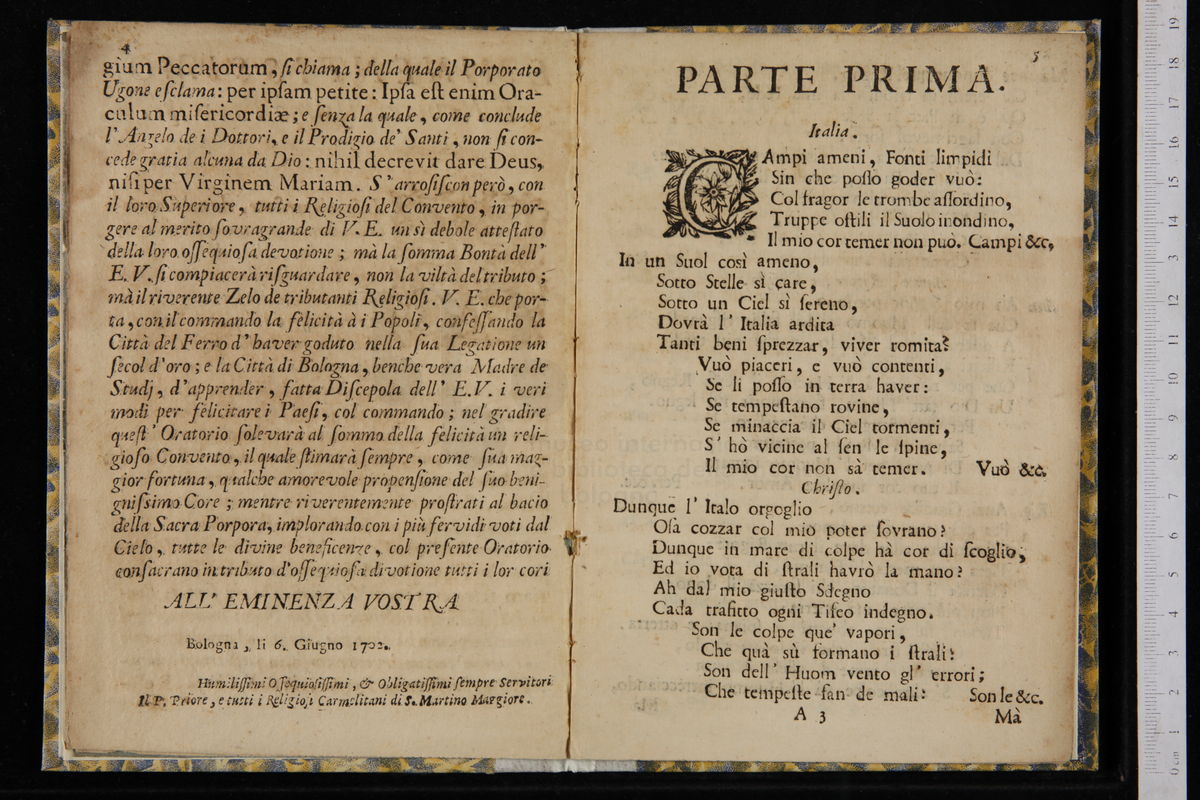 4
gium Peccatorum, ſi chiama; della quale il Porporato
Ugone eſclama: per ipſam petite: Ipſa eſt enim Ora-
culum miſericordiæ; e ſenza la quale, come conclude
l'Angelo de i Dottori, e il Prodigio de' Santi, non ſi con-
cede gratia alcuna da Dio: nihil decrevit dare Deus,
niſi per Virginem Mariam. S'arroſiſcon però, con
il loro Superiore, tutti i Religioſi del Convento, in por-
gere al merito ſovragrande di V. E. un sì debole atteſtato
della loro oſſequioſa devotione; mà la ſomma Bontà dell'
E. V. ſi compiacerà riſguardare, non la viltà del tributo;
mà il riverente Zelo de tributanti Religioſi. V. E. che por-
ta, con il commando la felicità à i Popoli, confeſſando la
Città del Ferro d'haver goduto nella ſua Legatione un
ſecol d'oro; e la Città di Bologna, benche vera Madre de
Studj, d'apprender, fatta Diſcepola dell' E.V. i veri
modi per felicitare i Paeſi, col commando; nel gradire
queſt' Oratorio ſolevarà al ſommo della felicità un reli-
gioſo Convento, il quale ſtimarà ſempre, come ſua mag-
gior fortuna, qualche amorevole propenſione del ſuo beni-
gniſsimo Core; mentre riverentemente proſtrati al bacio
della Sacra Porpora, implorando con i più fervidi voti dal
Cielo, tutte le divine beneficenze, col preſente Oratorio
conſacrano in tributo d'oſſequioſa divotione tutti i lor cori
ALL' EMINENZA VOSTRA
Bologna, li 6. Giugno 1702.
Humiliſſimi Oſſequioſiſſimi, & Obligatiſſimi ſempre Servitori
Il P. Priore, e tutti i Religioſi Carmelitani di S. Martino Maggiore.
5
PARTE PRIMA.
Italia.
CAmpi ameni, Fonti limpidi
Sin che poſſo goder vuò:
Col fragor le trombe aſſordino,
Truppe oſtili il Suolo inondino,
Il mio cor temer non può. Campi &c.
In un Suol così ameno,
Sotto Stelle sì care,
Sotto un Ciel sì ſereno,
Dovrà l' Italia ardita
Tanti beni ſprezzar, viver romita?
Vuò piaceri, e vuò contenti,
Se li poſſo in terra haver:
Se tempeſtano rovine,
Se minaccia il Ciel tormenti,
S' hò vicine al ſen le ſpine,
Il mio cor non sà temer. Vuò &c.
Chriſto.
Dunque l' Italo orgoglio
Oſà cozzar col mio poter ſovrano?
Dunque in mare di colpe hà cor di ſcoglio,
Ed io vota di ſtrali havrò la mano?
Ah dal mio giuſto Sdegno
Cada trafitto ogni Tifeo indegno.
Son le colpe que' vapori,
Che quà sù formano i ſtrali:
Son dell' Huom vento gl' errori;
Che tempeſte fan de mali: Son le &c.
A 3 Mà